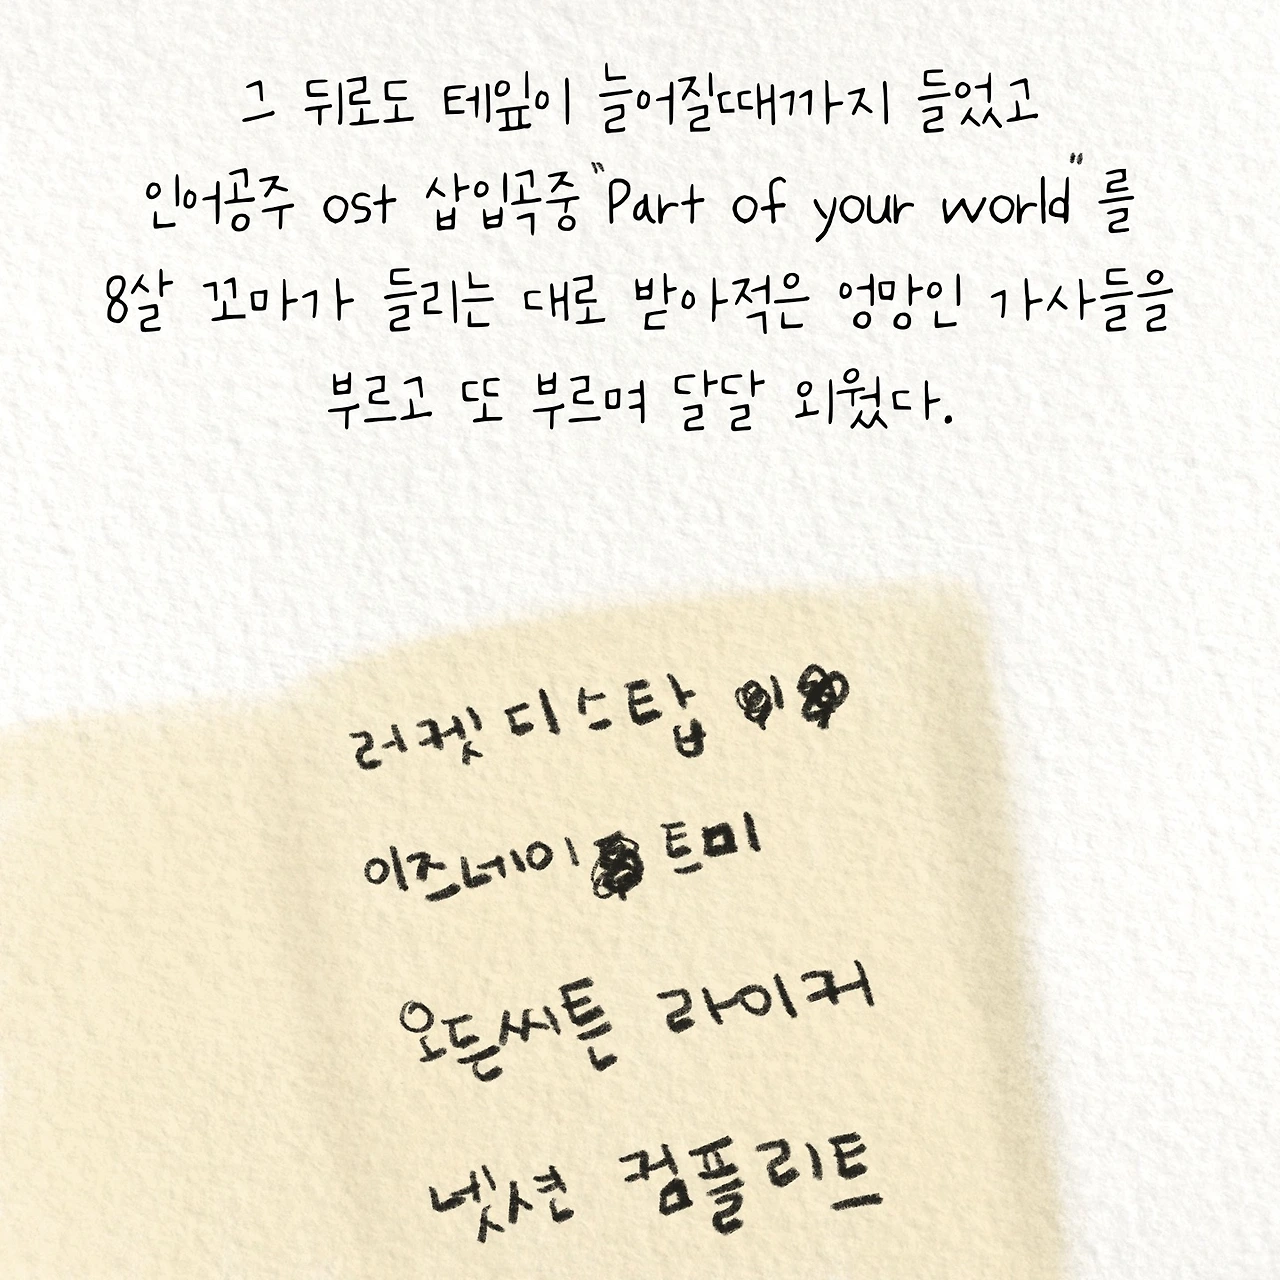 그 뒤로도 테잎이 늘어질때까지 들었고
인어공주 ost 삽입곡중 "Part of your world"를
8살 꼬마가 들리는 대로 받아적은 엉망인 가사들을
부르고 또 부르며 달달 외웠다.
러켓 디스탑
이즈네이 트미
오든씨튼 라이커
넷션 컴플리트